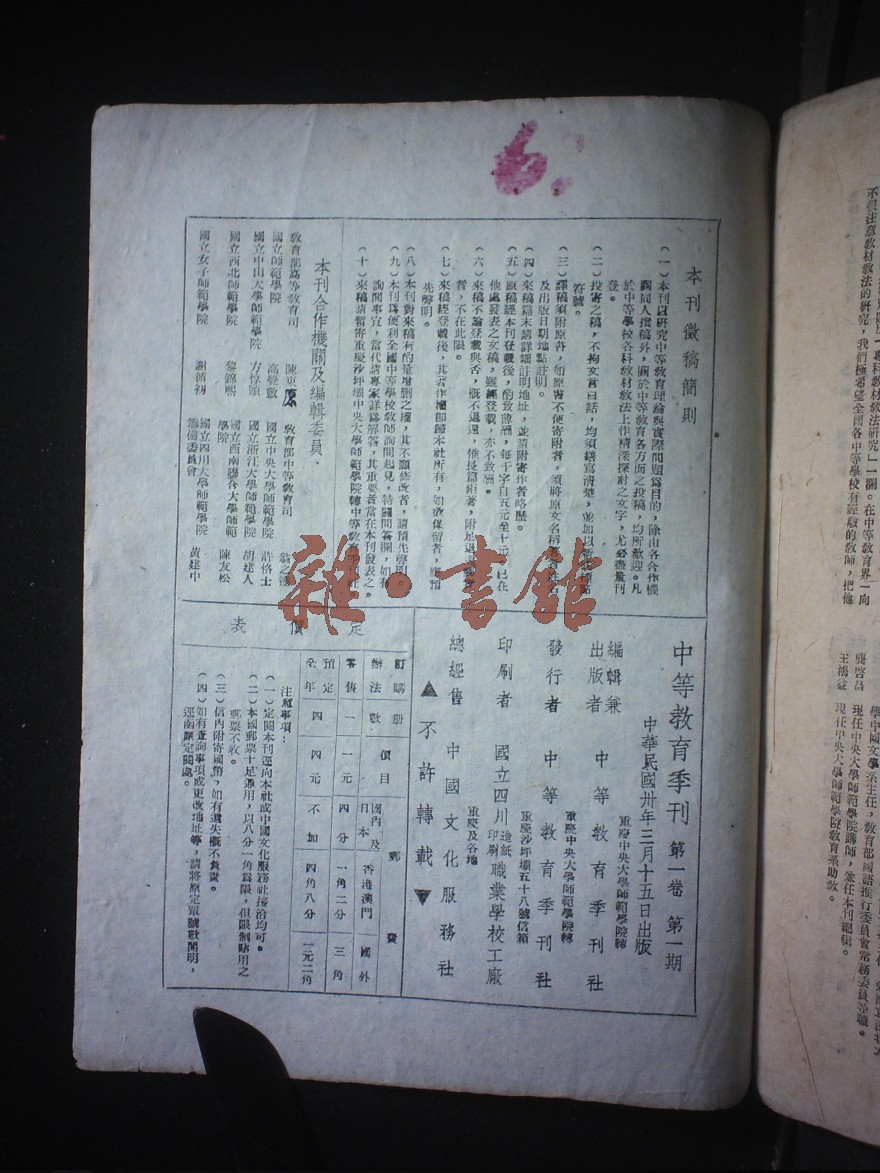 6.
本刊徵稿簡則
(一)本刊以研究中等教育理論與實際問題爲目的,除由各合作機
關同人撰稿外,關於中等教育各方面之投稿,均所歡迎。凡
於中等學校各科教材教法上作精深探討之文字,尤必儘量刊
登。
(二)投寄之稿,不拘文言白話,均須繕寫清楚,並加以新式標點
符號。
(三)譯稿須附原著,如原著不便寄附者,須將原文名稱
及出版日期地點註明。
(四)來稿篇末請詳細註明地址,並請附寄作者略歷。
(五)原稿經本刊登載後,酌致薄酬,每千字自五元至十元,已在
他處發表之文稿,雖經登載,亦不致酬。
(六)來稿不論登載與否,概不退還,惟長篇鉅著,附足退
者,不在此限。
(七)來稿經登載後,其著作權即歸本社所有,如欲保留者,應預
先聲明。
(八)本刊對來稿有酌量增刪之權,其不願修改者,請預先聲明。
(九)本刊爲便利全國中等學校教師詢問起見,特闢問答欄,如有
詢問事宜,當代請專家詳爲解答,其重要者當在本刊發表之。
(十)來稿請暫寄重慶沙坪壩中央大學師範學院轉中等教育季刊社
本刊合作機關及編輯委員
教育部高等教育司 陳東原
國立師範學院 高覺敷
國立中山大學師範學院 方惇頤
國立西北師範學院 黎錦熙
國立女子師範學院 謝循初
教育部中等教育司
國立中央大學師範學院 許恪士
國立浙江大學師範學院 胡建人
國立西南聯合大學師範
學院 陳友松
國立四川大學師範學院
籌備委員會 黃建中
雜·書館
中等教育季刊 第一卷 第一期
中華民國卅年三月十五日出版
編輯兼
出版者 中等教育季刊社
重慶中央大學師範學院轉
發行者 中等教育季刊社
重慶中央大學師範學院轉
重慶沙坪壩五十八號信箱
印刷者 國立四川造紙印刷職業學校工廠
總經售 中國文化服務社
重慶及各地
▲不許轉載▼
定價表
訂購辦法 冊數 價目 郵費
國內及日本 香港澳門 國外
零售 一 一元 四分 一角二分 三角
預定全年 四 四元 不加 四角八分 一元二角
注意事項:
(一)定閱本刊逕向本社或中國文化服務社接洽均可。
(二)本國郵票十足通用,以八分一角爲限,但限制貼用之
郵票不收。
(三)信內附寄國幣,如有遺失概不負責。
(四)如有查詢事項或更改地址等,請將原定單號數開明,
逕函原定閱處。
不甚注意教材教法的研究,我們極希望全國各中等學校有經驗的教師,把他
學中國文學系主任,教育部國語推行委員會常務委員等職。
龔啓昌 現任中央大學師範學院講師,兼任本刊編輯。
王鴻益 現任中央大學師範學院教育系助教。